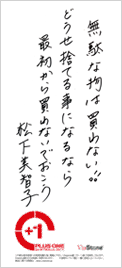 無駄な物は買わない!!
どうせ捨てる事になるなら
最初から買わないでおこう
松下美智子
+1
PLUS-ONE